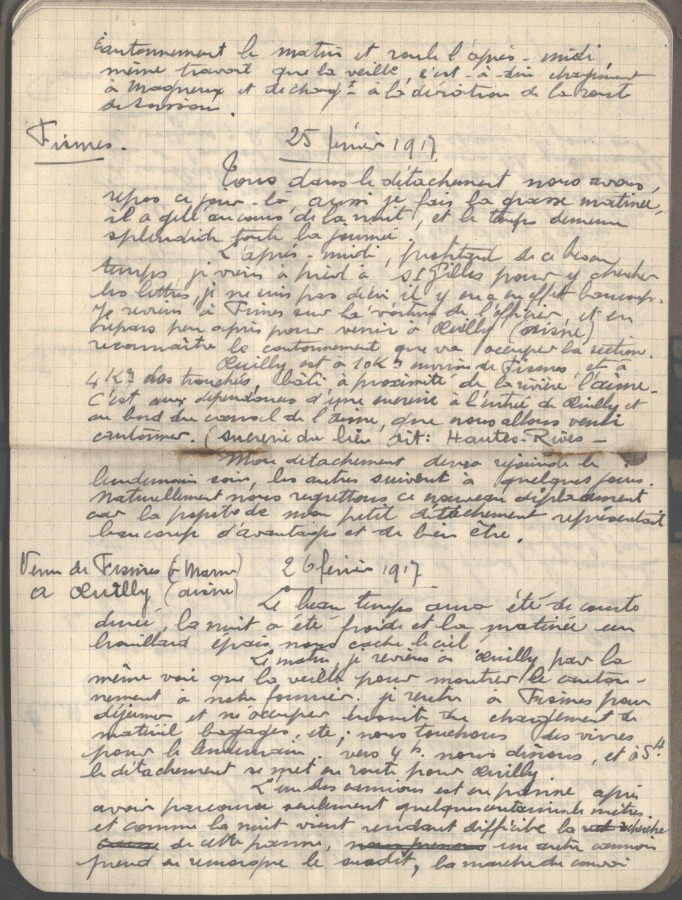 cantonnement le matin et roule l'après-midi,
même travail que la veille, c'est-à-dire chargement
à Magneux et déchargt à la déviation de la route
de Soissons.
Fismes.
25 février 1917
Tous dans le détachement nous avons
repos ce jour-là, aussi je fais la grasse matinée,
il a gelé au cours de la nuit, et le temps demeure
splendide toute la journée.
L'après-midi, profitant de ce beau
temps, je viens à pied à St Gilles pour y chercher
les lettres, je ne suis pas déçu il y en a en effet beaucoup.
Je reviens à Fismes sur la voiture de l'officier, et en
repars peu après pour venir à Œuilly (Aisne)
reconnaître le cantonnement que va occuper la section.
Œuilly est à 10 Km environ de Fismes, et à
4 Km des tranchées, bâti à proximité de la rivière l'Aisne.
C'est aux dépendances d'une sucrerie à l'entrée de Œuilly et
au bord du canal de l'Aisne, que nous allons venir
cantonner. (sucrerie du lieu dit: Hautes-Rives -
Mon détachement devra rejoindre le
lendemain soir, les autres suivant à quelques jours.
Naturellement nous regrettons ce nouveau déplacement
car la popote de mon petit détachement représentait
beaucoup d'avantages et de bien être.
Venu de Fismes (Marne)
à Œuilly (Aisne)
26 février 1917
Le beau temps aura été de courte
durée, la nuit a été froide et la matinée un
brouillard épais nous cache le ciel.
Le matin, je reviens à Œuilly par la
même voie que la veille pour montrer le canton-
nement à notre fourrier. je rentre à Fismes pour
déjeuner et m'occuper ensuite du chargement de
matériel bagages, etc; nous touchons des vivres
pour le lendemain vers 4 h. nous dînons, et à 5h
le détachement se met en route pour Œuilly.
L'un des camions est en panne après
avoir parcouru seulement quelques centaines de mètres.
et comme la nuit vient rendant difficile la recherche
de cette panne, un autre camion
prend en remorque le susdit, la marche du convoi